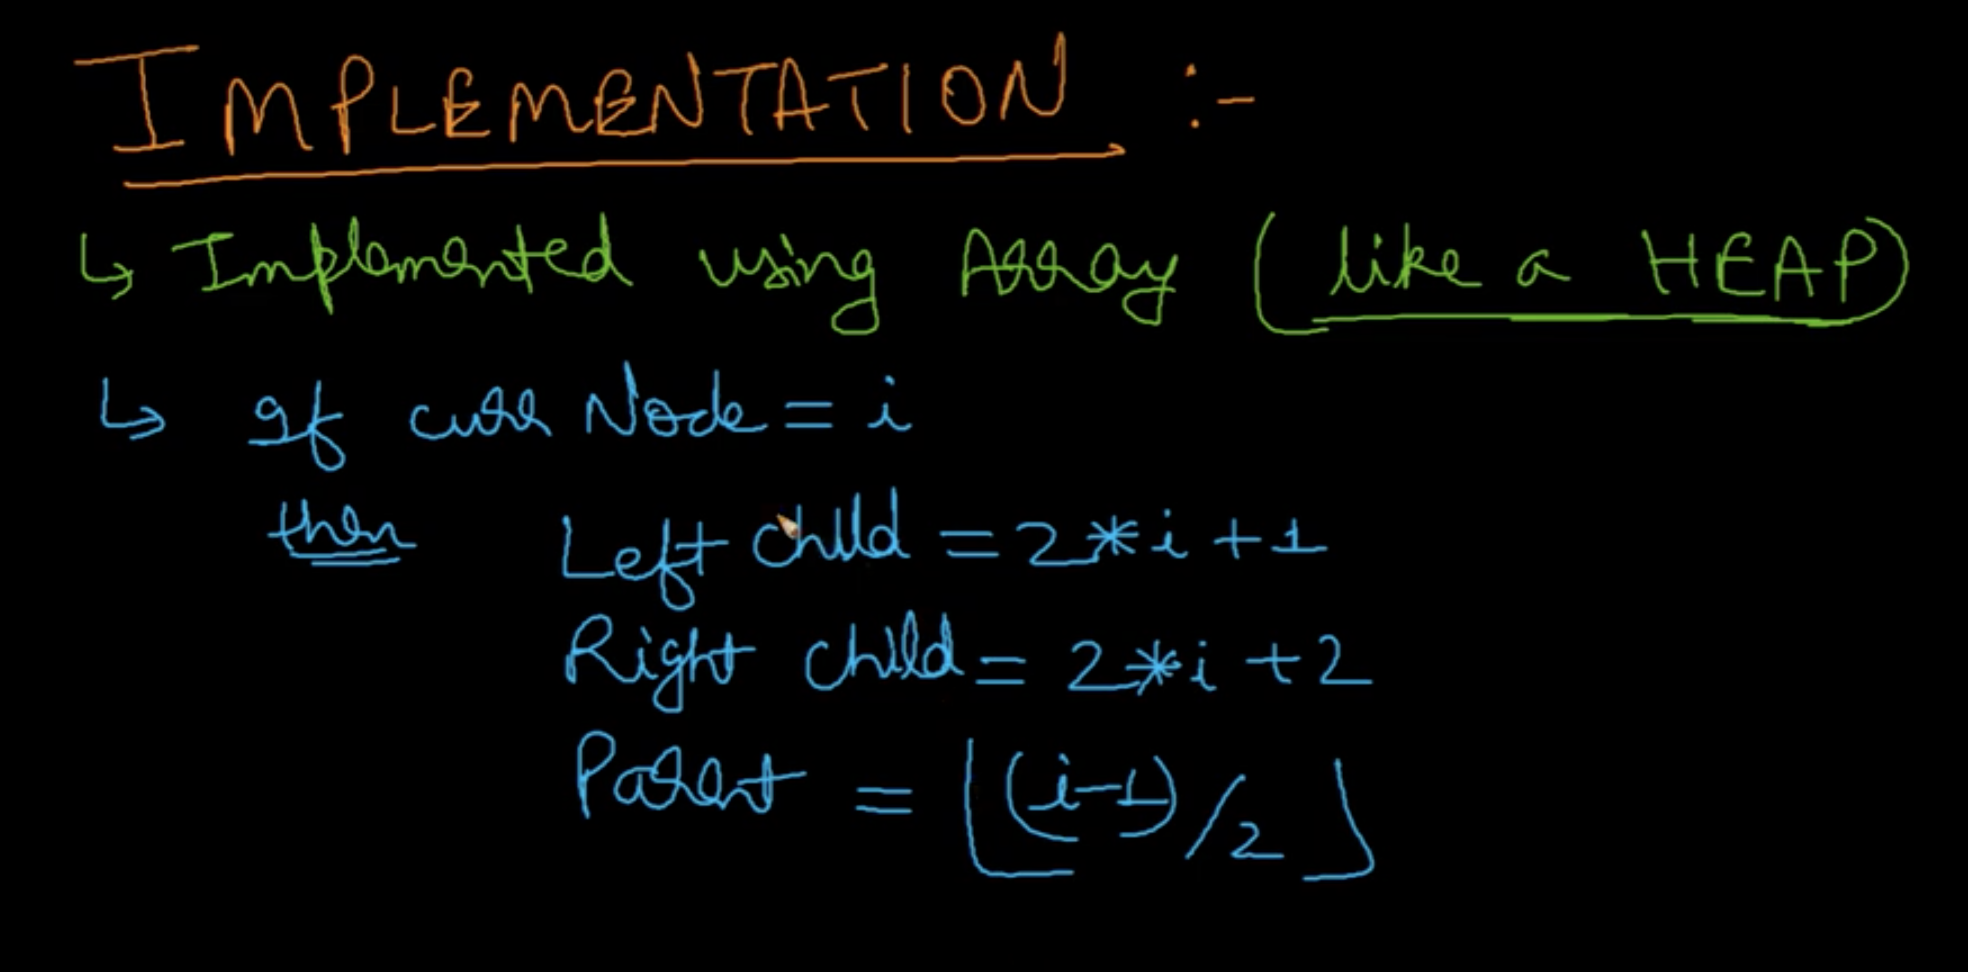 IMPLEMENTATION :-
↳ Implemented using Array (like a HEAP)
↳ If curr Node = i
then Left child = 2*i+1
Right child = 2*i+2
Parent = ⌊(i-1)/2⌋